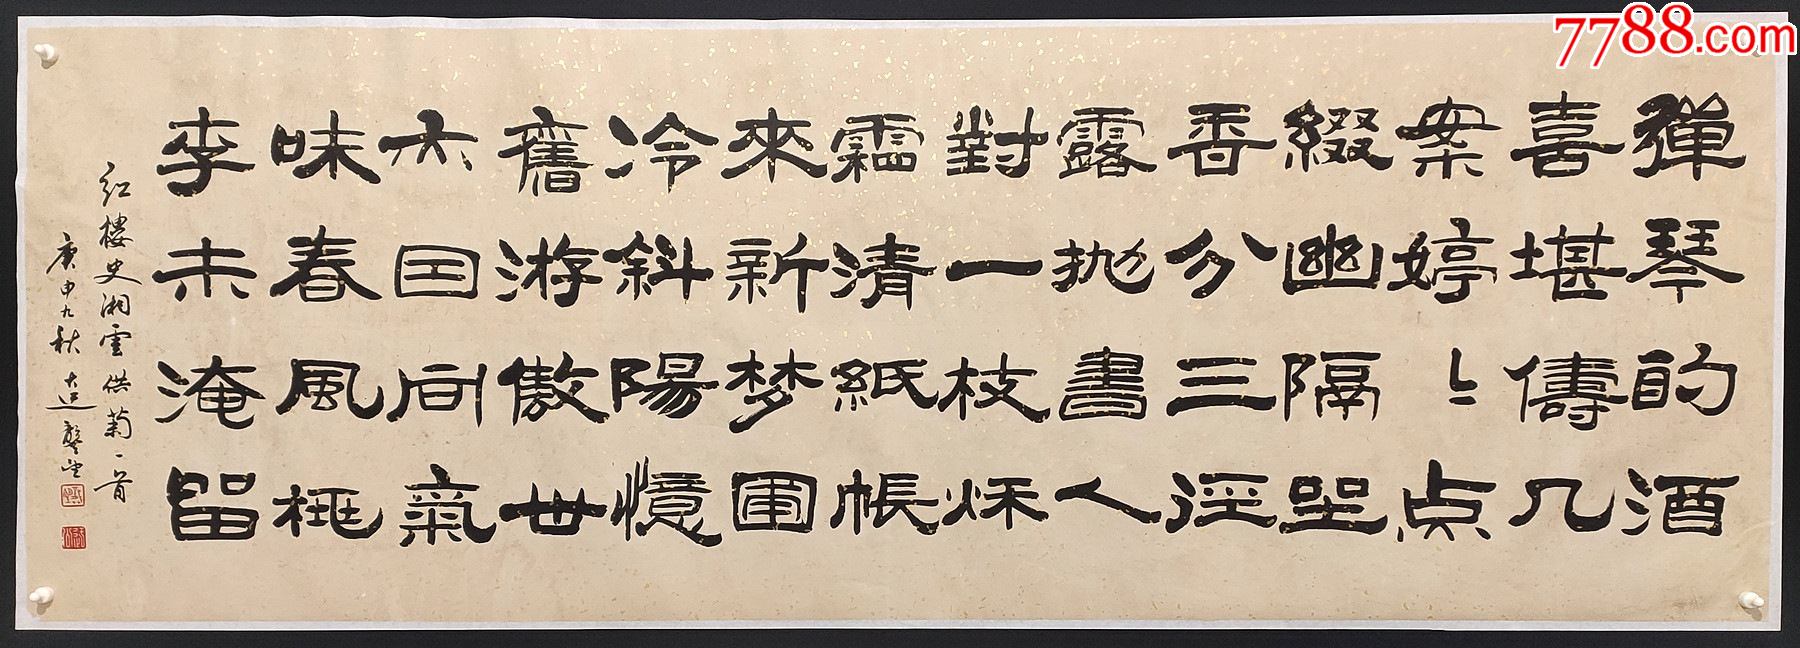 7788.com
彈琴酌酒
喜堪儔几
案婷〻点
綴幽隔坐
香分三徑
露抛書人
對一枝秋
霜清紙帳
來新梦圃
冷斜陽憶
舊游傲世
也因同氣
味春風桃
李未淹留
红樓史湘雲供菊一首
庚申九秋 大迂龔望